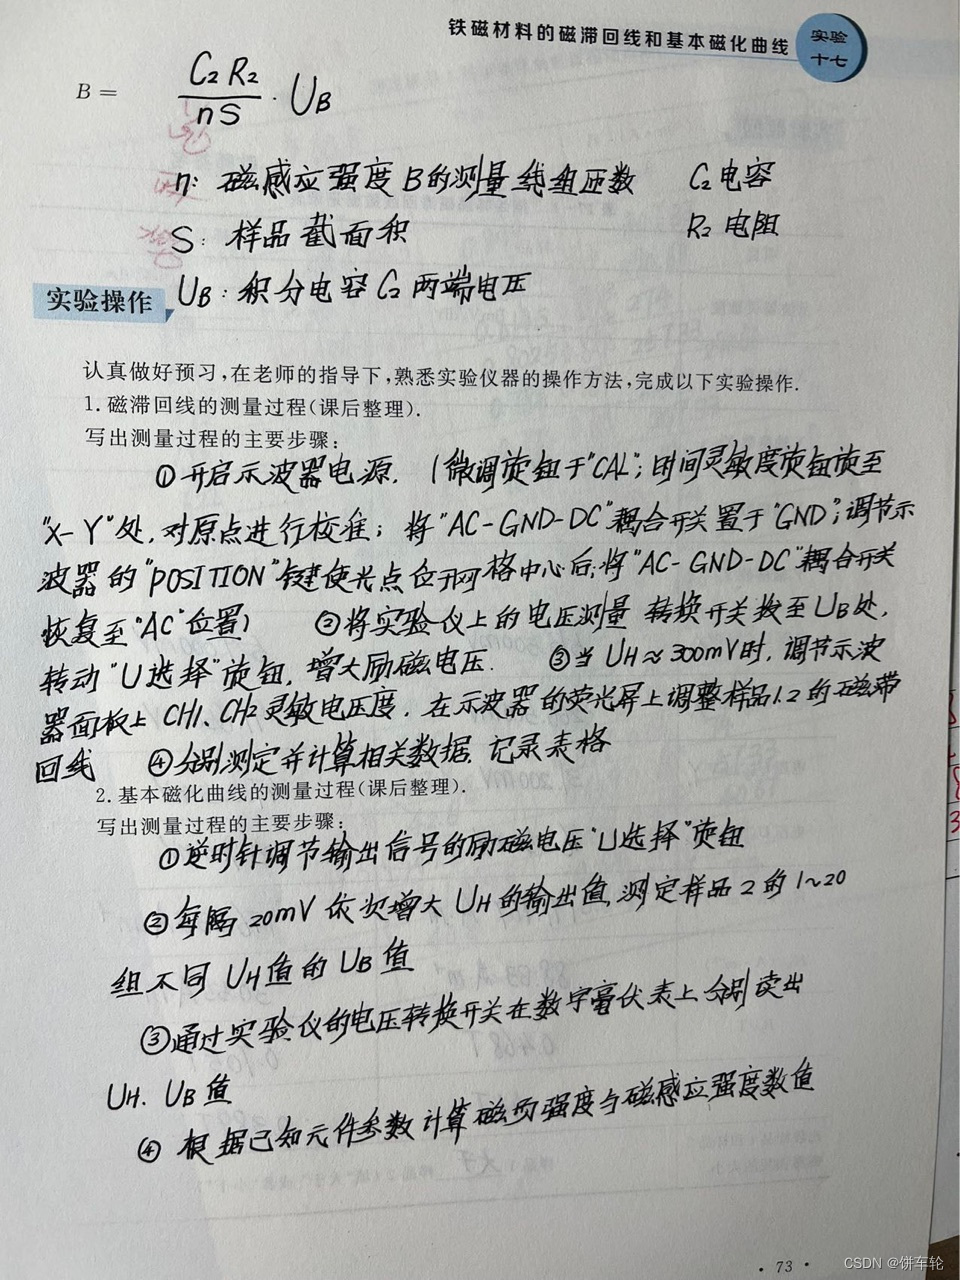 铁磁材料的磁滞回线和基本磁化曲线
实验
十七
B = C₂R₂/nS · U_B
n: 磁感应强度B的测量线组匝数 C₂电容
S: 样品截面积 R₂电阻
U_B: 积分电容C₂两端电压
实验操作
认真做好预习,在老师的指导下,熟悉实验仪器的操作方法,完成以下实验操作.
1.磁滞回线的测量过程(课后整理).
写出测量过程的主要步骤:
①开启示波器电源. (微调旋钮于"CAL"; 时间灵敏度旋钮旋至
"X-Y"处,对原点进行校准; 将"AC-GND-DC"耦合开关置于"GND";调节示
波器的"POSITION"键使光点位于网格中心后;将"AC-GND-DC"耦合开关
恢复至"AC"位置) ②将实验仪上的电压测量转换开关拨至U_B处,
转动"U选择"旋钮,增大励磁电压. ③当U_H≈300mV时,调节示波
器面板上CH1、CH2灵敏电压度.在示波器的荧光屏上调整样品1.2的磁滞
回线 ④分别测定并计算相关数据.记录表格
2.基本磁化曲线的测量过程(课后整理).
写出测量过程的主要步骤:
①逆时针调节输出信号的励磁电压"U选择"旋钮
②每隔20mV依次增大U_H的输出值,测定样品2的1~20
组不同U_H值的U_B值
③通过实验仪的电压转换开关在数字毫伏表上分别读出
U_H. U_B值
④ 根据已知元件参数计算磁场强度与磁感应强度数值
· 73 ·
CSDN @饼车轮